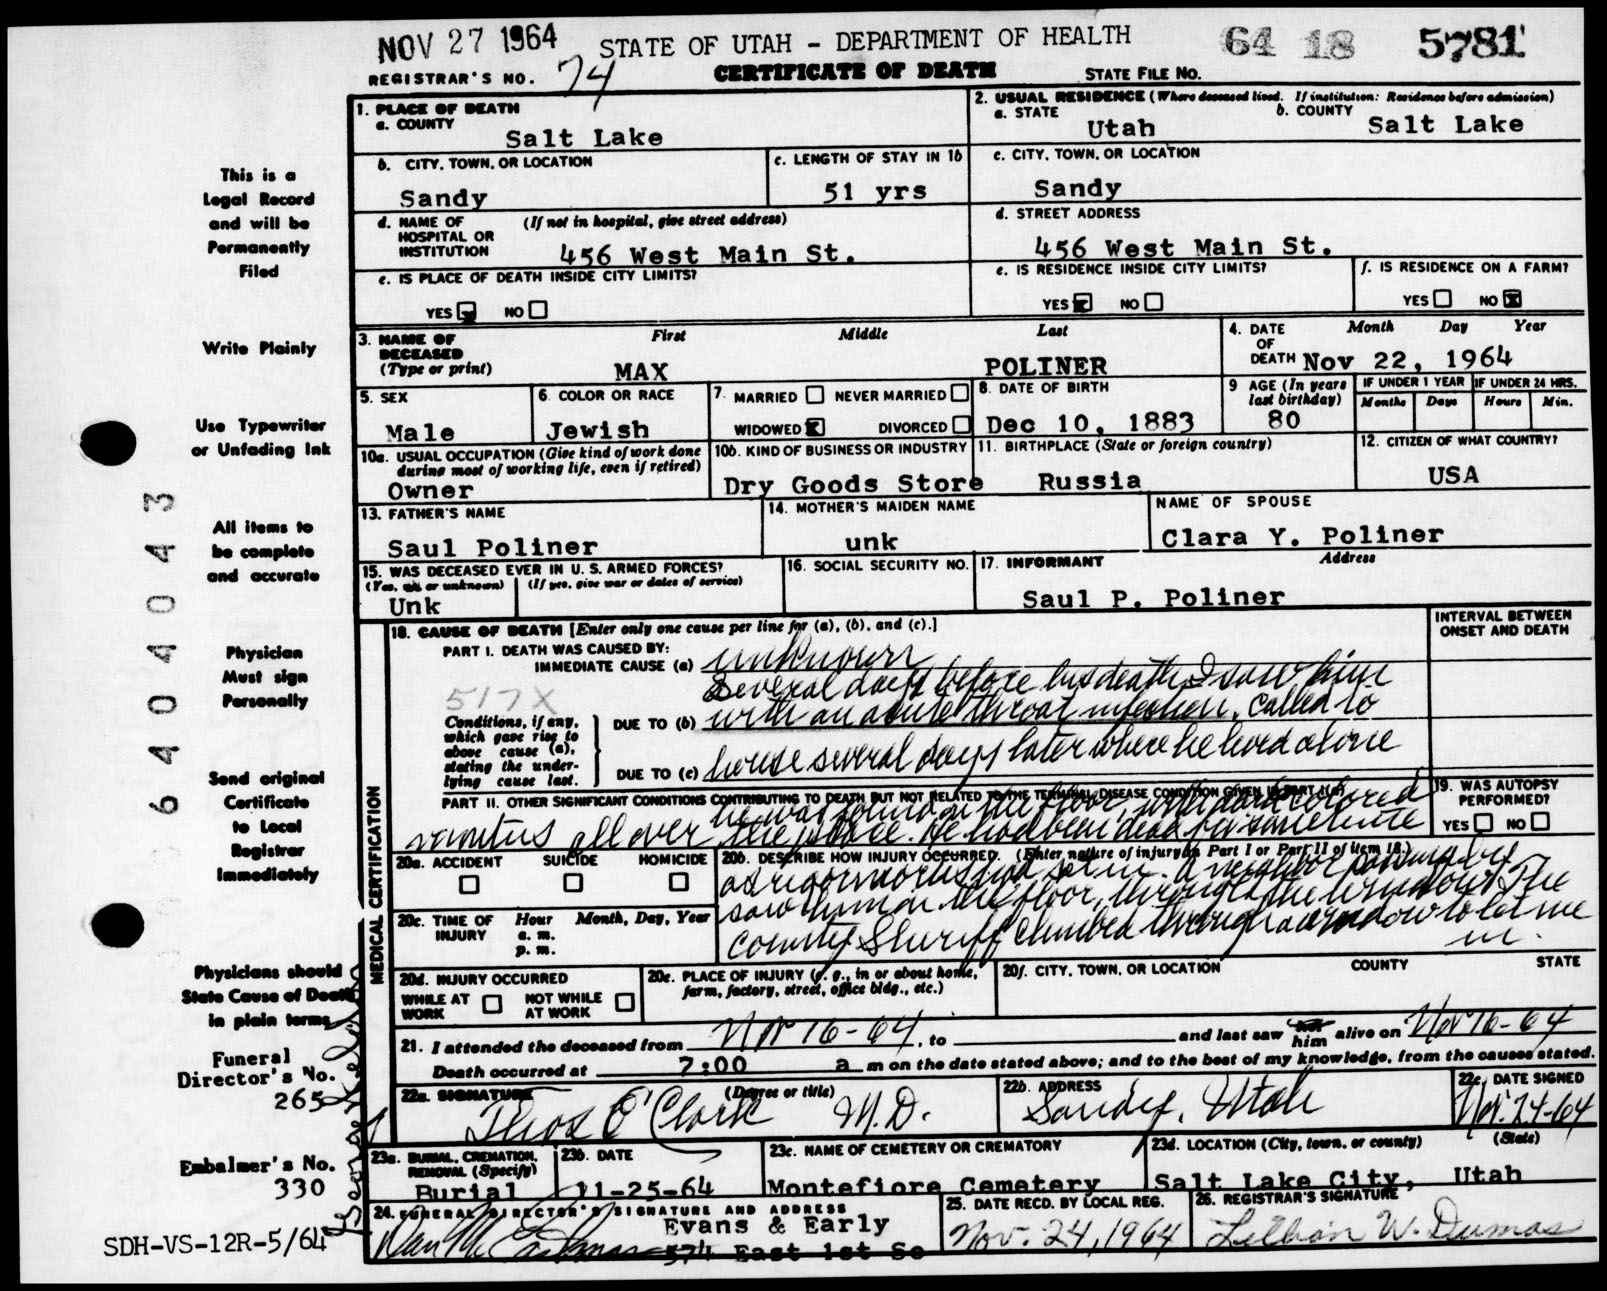 NOV 27 1964
STATE OF UTAH - DEPARTMENT OF HEALTH
64 18 5781
REGISTRAR'S NO. 74
CERTIFICATE OF DEATH
STATE FILE No.
This is a
Legal Record
and will be
Permanently
Filed
Write Plainly
Use Typewriter
or Unfading Ink
All items to
be complete
and accurate
Physician
Must sign
Personally
Send original
Certificate
to Local
Registrar
Immediately
Physicians should
State Cause of Death
in plain terms
Funeral
Director's No.
265
Embalmer's No.
330
SDH-VS-12R-5/64
64 04043
1. PLACE OF DEATH
a. COUNTY
Salt Lake
2. USUAL RESIDENCE (Where deceased lived. If institution: Residence before admission)
a. STATE Utah
b. COUNTY Salt Lake
b. CITY, TOWN, OR LOCATION
Sandy
c. LENGTH OF STAY IN 1b
51 yrs
c. CITY, TOWN, OR LOCATION
Sandy
d. NAME OF HOSPITAL OR INSTITUTION (If not in hospital, give street address)
456 West Main St.
d. STREET ADDRESS
456 West Main St.
e. IS PLACE OF DEATH INSIDE CITY LIMITS?
YES NO
e. IS RESIDENCE INSIDE CITY LIMITS?
YES NO
f. IS RESIDENCE ON A FARM?
YES NO
3. NAME OF DECEASED (Type or print)
First Middle Last
MAX POLINER
4. DATE OF DEATH Month Day Year
Nov 22, 1964
5. SEX
Male
6. COLOR OR RACE
Jewish
7. MARRIED NEVER MARRIED
WIDOWED DIVORCED
8. DATE OF BIRTH
Dec 10, 1883
9 AGE (In years last birthday)
80
IF UNDER 1 YEAR
Months Days
IF UNDER 24 HRS.
Hours Min.
10a. USUAL OCCUPATION (Give kind of work done during most of working life, even if retired)
Owner
10b. KIND OF BUSINESS OR INDUSTRY
Dry Goods Store
11. BIRTHPLACE (State or foreign country)
Russia
12. CITIZEN OF WHAT COUNTRY?
USA
13. FATHER'S NAME
Saul Poliner
14. MOTHER'S MAIDEN NAME
unk
NAME OF SPOUSE
Clara Y. Poliner
15. WAS DECEASED EVER IN U. S. ARMED FORCES?
(Yes, no, or unknown) (If yes, give war or dates of service)
Unk
16. SOCIAL SECURITY NO.
17. INFORMANT Address
Saul P. Poliner
MEDICAL CERTIFICATION
18. CAUSE OF DEATH [Enter only one cause per line for (a), (b), and (c).]
INTERVAL BETWEEN ONSET AND DEATH
PART I. DEATH WAS CAUSED BY:
IMMEDIATE CAUSE (a) unknown
517X
Several days before his death I saw him
Conditions, if any, which gave rise to above cause (a), stating the underlying cause last.
DUE TO (b) with an acute throat infection. Called to
DUE TO (c) house several days later where he lived alone
PART II. OTHER SIGNIFICANT CONDITIONS CONTRIBUTING TO DEATH BUT NOT RELATED TO THE TERMINAL DISEASE CONDITION GIVEN IN PART I(a)
he was found on the floor, with dark colored
vomitus all over the place. He had been dead for sometime
19. WAS AUTOPSY PERFORMED?
YES NO
20a. ACCIDENT SUICIDE HOMICIDE
20b. DESCRIBE HOW INJURY OCCURRED. (Enter nature of injury in Part I or Part II of item 18.)
as rigor mortis had set in. a neighbor passing by
saw him on the floor, through the window. The
County Sheriff climbed through a window to let me
in.
20c. TIME OF INJURY Hour Month, Day, Year
a. m.
p. m.
20d. INJURY OCCURRED
WHILE AT WORK NOT WHILE AT WORK
20e. PLACE OF INJURY (e. g., in or about home, farm, factory, street, office bldg., etc.)
20f. CITY, TOWN, OR LOCATION COUNTY STATE
21. I attended the deceased from Nov 16-64, to and last saw her him alive on Nov 16-64
Death occurred at 7:00 a m on the date stated above; and to the best of my knowledge, from the causes stated.
22a. SIGNATURE (Degree or title)
Thos E Clark M.D.
22b. ADDRESS
Sandy, Utah
22c. DATE SIGNED
Nov. 24-64
23a. BURIAL, CREMATION, REMOVAL (Specify)
Burial
23b. DATE
11-25-64
23c. NAME OF CEMETERY OR CREMATORY
Montefiore Cemetery
23d. LOCATION (City, town, or county) (State)
Salt Lake City, Utah
24. FUNERAL DIRECTOR'S SIGNATURE AND ADDRESS
Evans & Early
574 East 1st So
25. DATE RECD. BY LOCAL REG.
Nov. 24, 1964
26. REGISTRAR'S SIGNATURE
Lillian W. Dumas